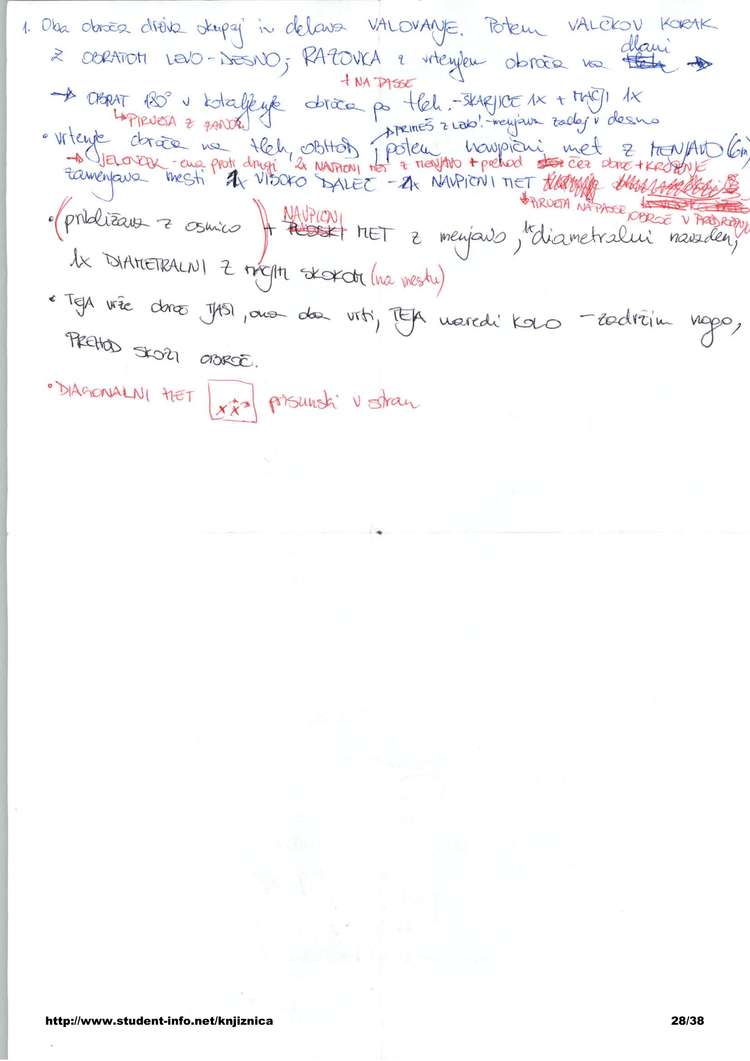 1. Oba obroča drživa skupaj in delava VALOVANJE. Potem VALČKOV KORAK
Z OBRATOM LEVO-DESNO; RAZOVKA z vrtenjem obroča na dlani →
+ NA PASSE
→ OBRAT 180° v kotaljenje obroča po tleh. - ŠKARJICE 1X + MAČJI 1X
↳ PIRUETA Z
PRIMEŠ Z LEVO! - menjava zadaj v desno
• vrtenje obroča na tleh, OBHOD, potem navpični met z MENJAVO (6m)
→ JELONČEK - ena proti drugi 2x NAVPIČNI MET z MENJAVO + prehod čez obroč + KROŽENJE
zamenjava mesti 1X VISOKO DALEČ - 2x NAVPIČNI MET
PIRUETA NA PASSE, OBROČ V
• (približava z osmico) + NAVPIČNI MET z menjavo, 1x diametralni navaden,
1x DIAMETRALNI Z MAČJIM SKOKOM (na mestu)
• TEJA vrže obroč TJAŠI, ona dva vrti, TEJA naredi KOLO - zadržim nogo,
PREHOD SKOZI OBROČ.
• DIAGONALNI MET x x prisunski v stran
http://www.student-info.net/knjiznica 28/38